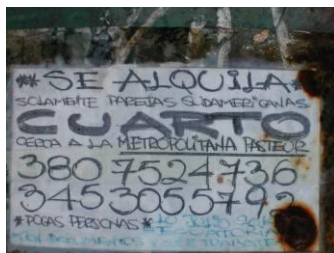 ** SE ALQUILA *
SOLAMENTE PAREJAS SUDAMERICANAS
CUARTO
CERCA A LA METROPOLITANA PASTEUR
380 7524736
345 3055792
* POCAS PERSONAS *